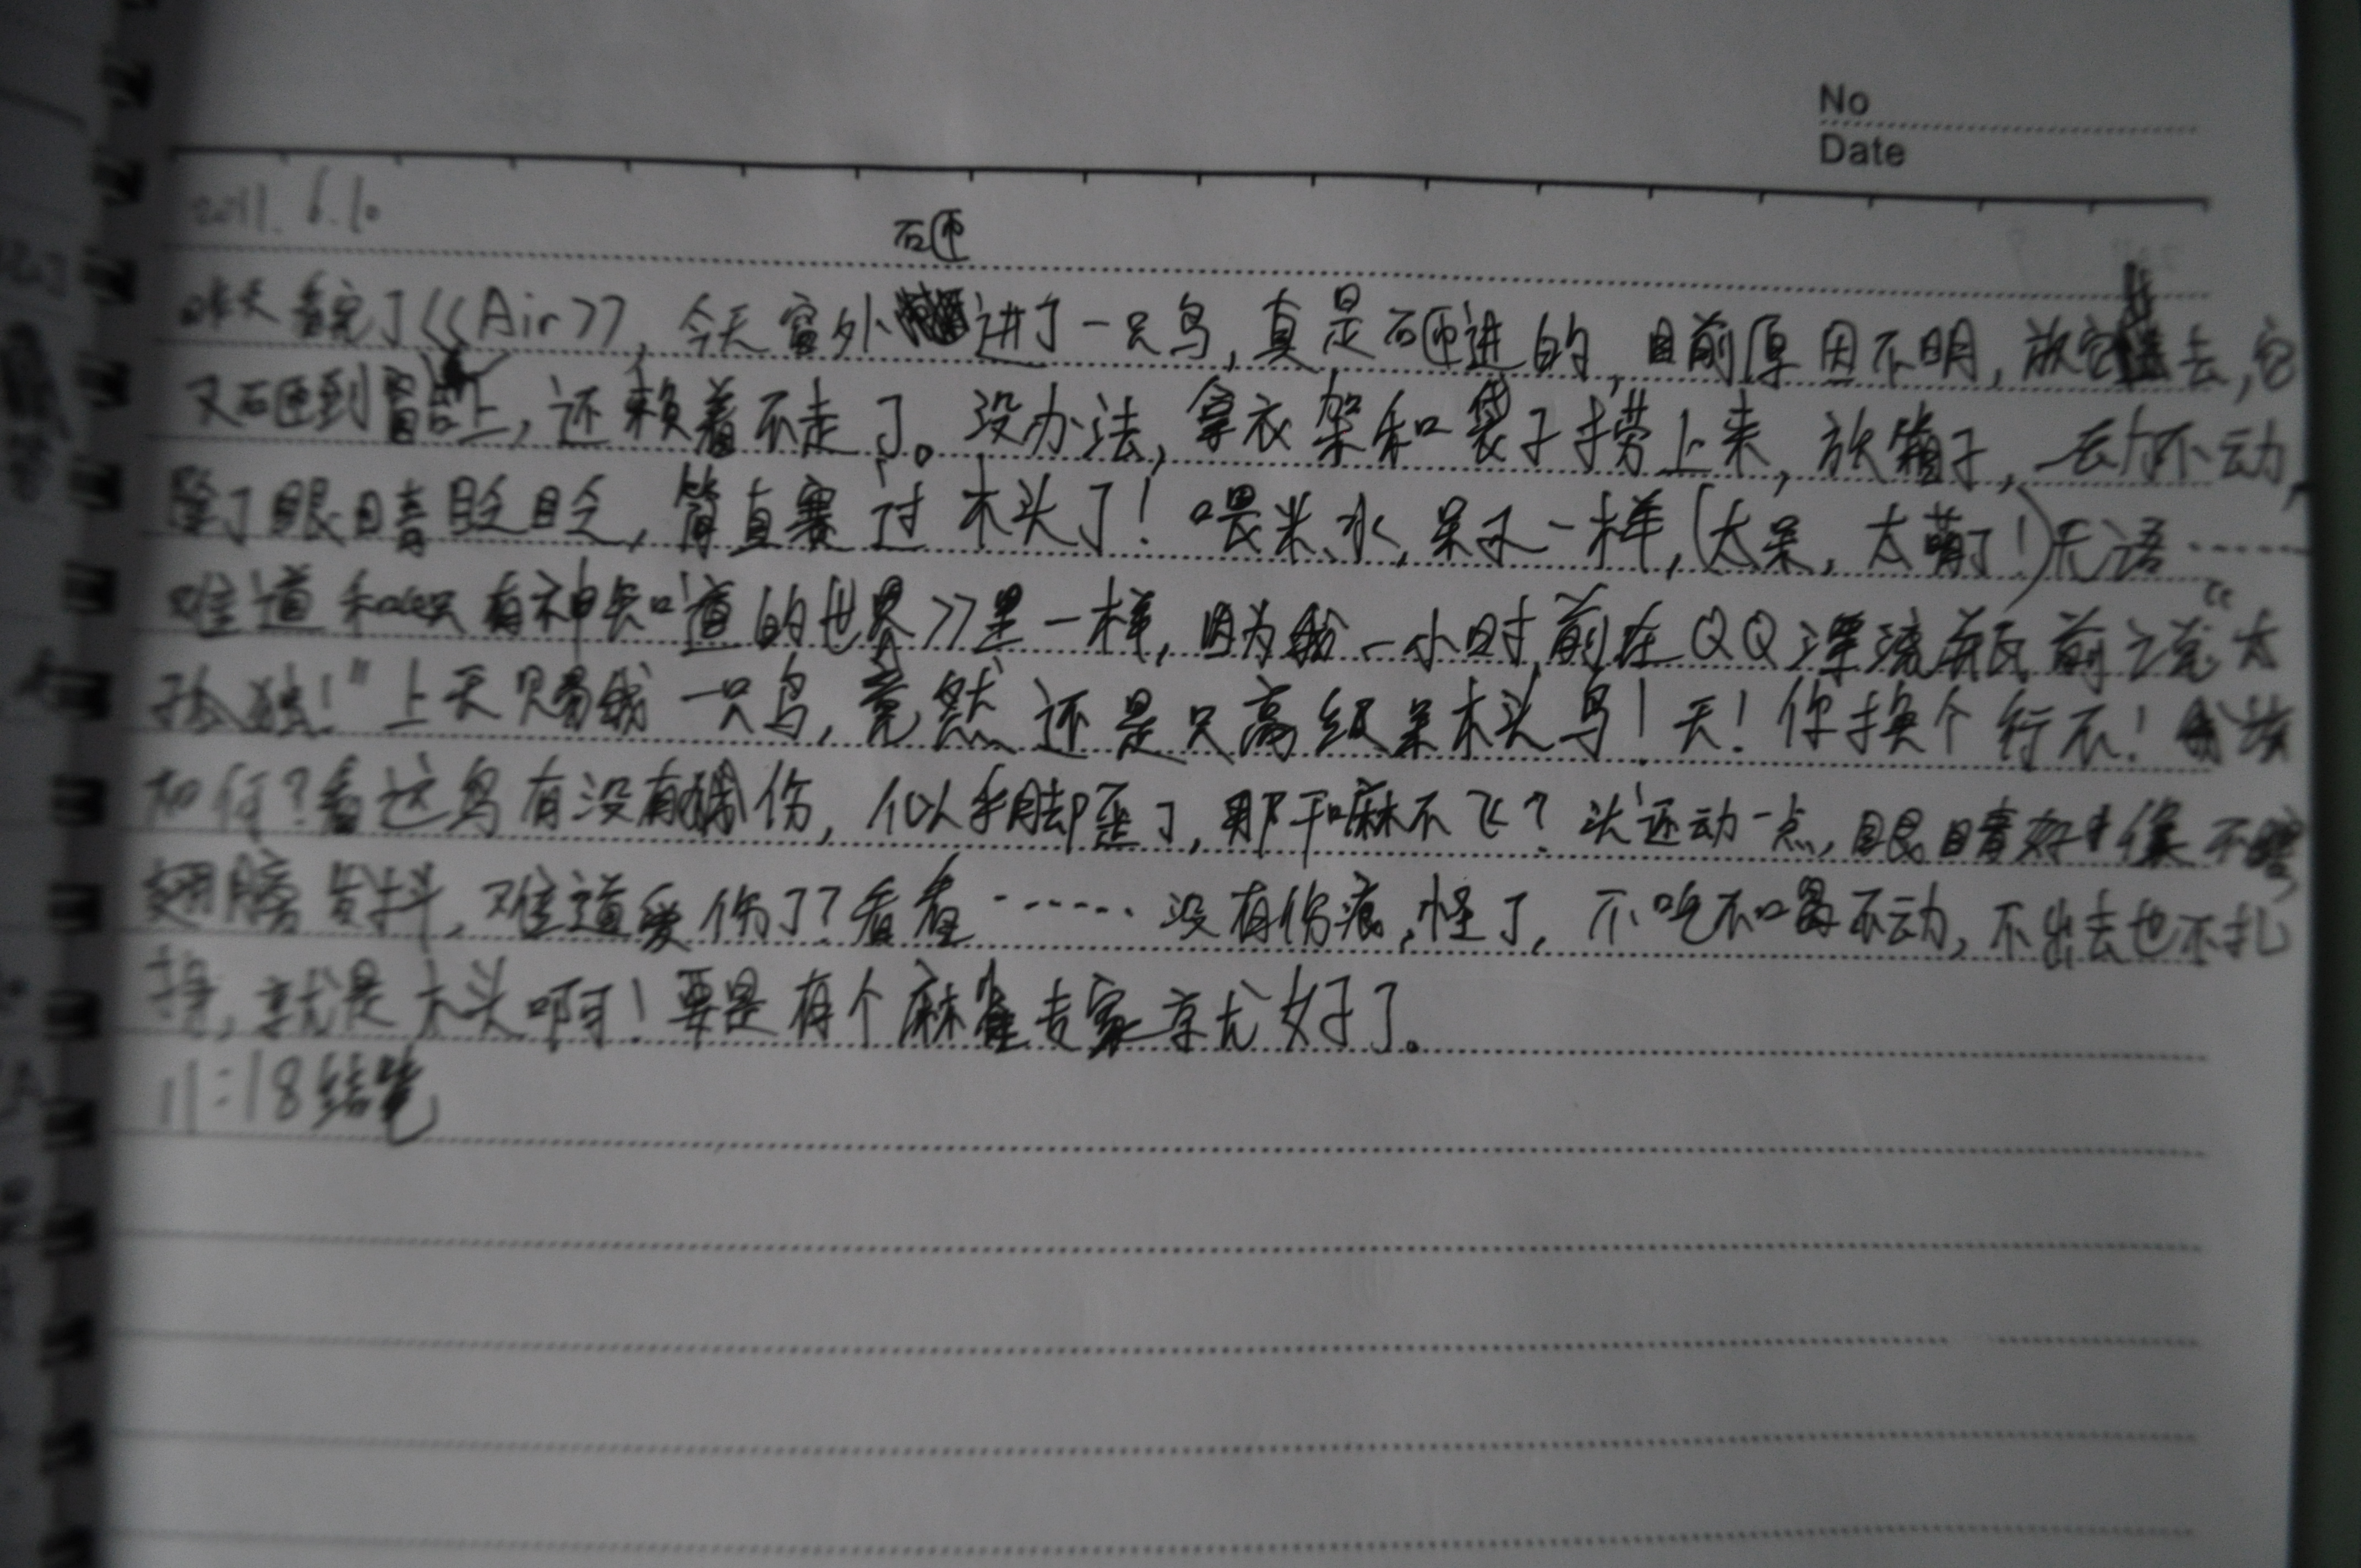 No
Date
2011.6.10
砸
昨天看完了《Air》，今天窗外进了一只鸟，真是砸进的，目前原因不明，放它出去，它
又砸到窗台上，还赖着不走了。没办法，拿衣架和袋子捞上来，放箱子，一动不动，
除了眼睛眨眨，简直赛过木头了！喂米、水，呆子一样，(太呆，太萌了！)无语……
难道和《只有神知道的世界》里一样，因为我一小时前在QQ漂流瓶前说“太
孤独！”上天赐我一只鸟，竟然还是只高级呆木头鸟！天！你换个行不！
如何？看这鸟有没有伤，似乎脚歪了，那干嘛不飞？头还动一点，眼睛好像不
翅膀发抖，难道受伤了？看看……没有伤痕，怪了，不吃不喝不动，不出去也不扎
挣，就是木头啊！要是有个麻雀专家就好了。
11:18结笔